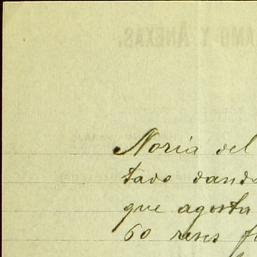 AMO Y ANEXAS.
Noria del
tado dando
que agosta
60 reses